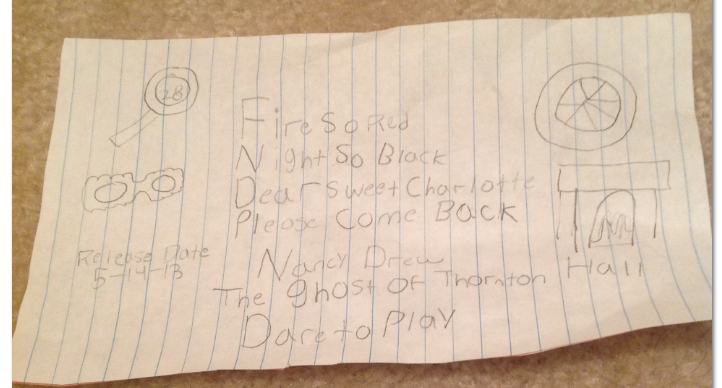 28
Fire So Red
Night So Black
Dear Sweet Charlotte
Please Come Back
Release Date
5-14-13
Nancy Drew
The ghost of Thornton Hall
Dare to Play